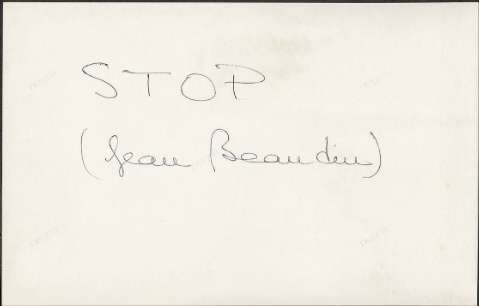 STOP
(Jean Beaudin)